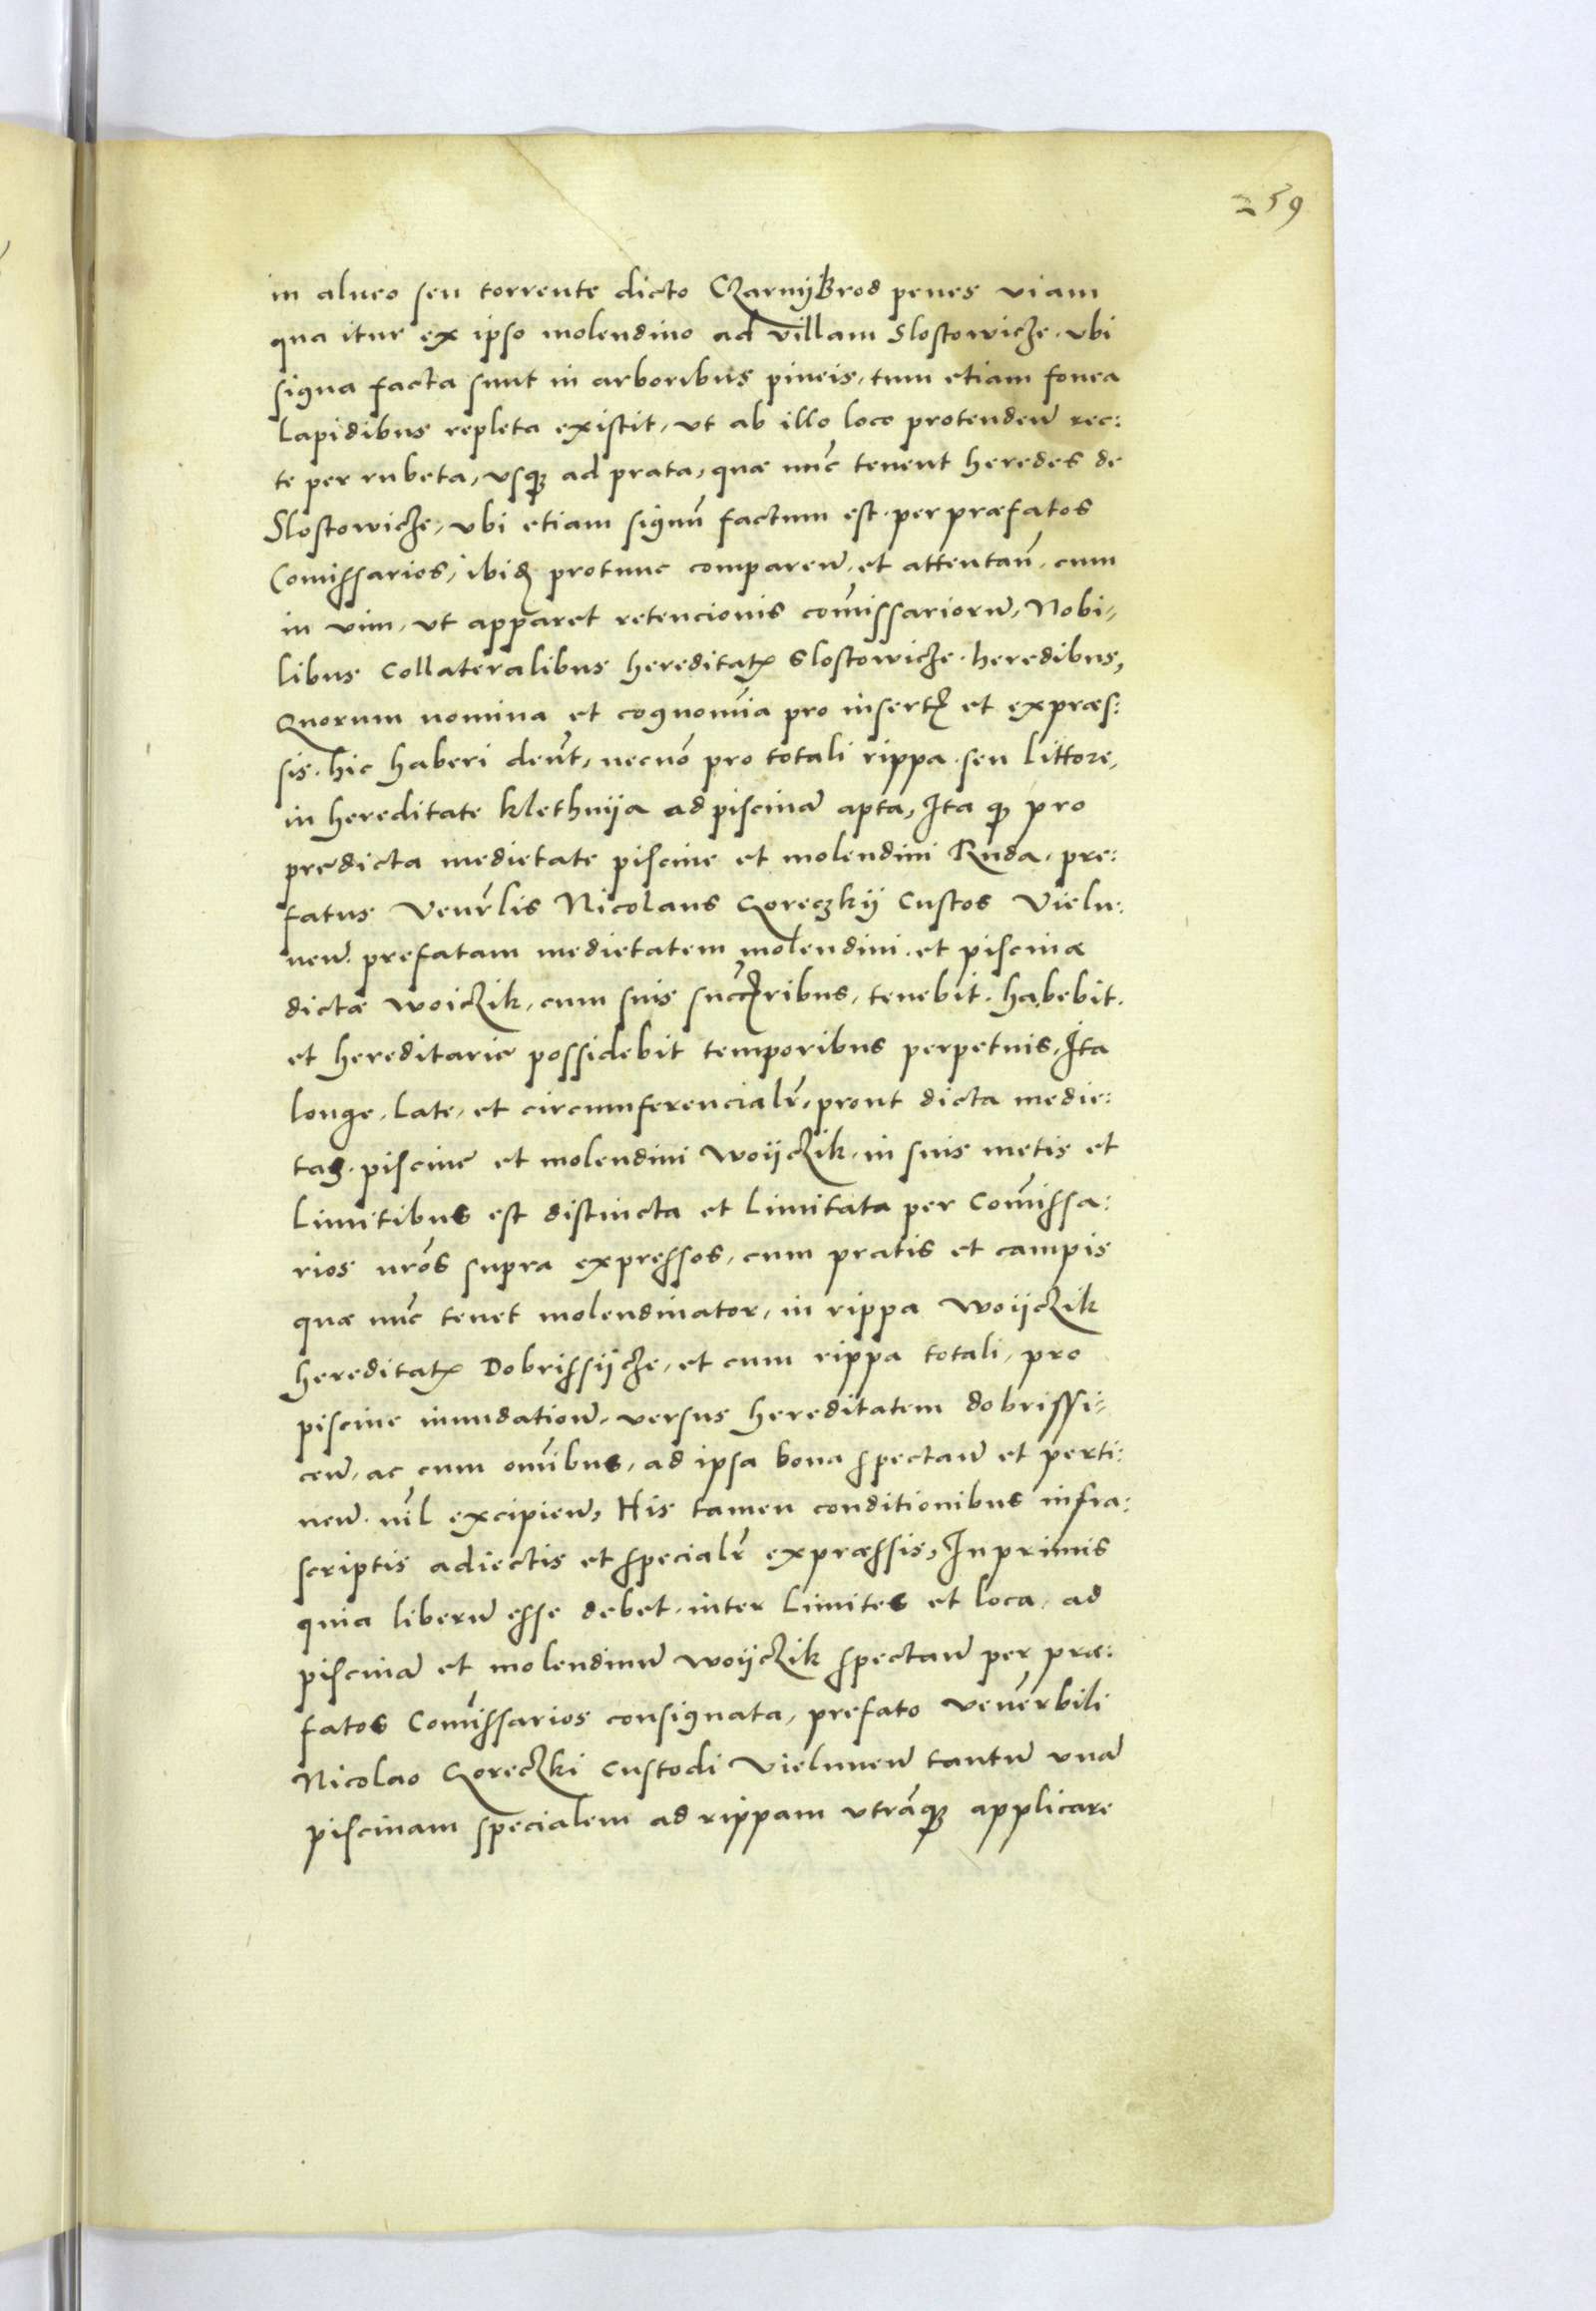 259
in alueo seu torrente dicto CzarnyBrod penes viam
qua itur ex ipso molendino ad villam Slostowicze. vbi
signa facta sunt in arboribus pineis, tum etiam fouea
Lapidibus repleta existit, vt ab illo loco protendeñ rec:
te per rubeta, vsqꝫ ad prata, quæ nũc tenent heredes de
Slostowicze, vbi etiam signũ factum est. per præfatos
Comissarios, ibiđ protunc compareñ. et attentañ. cum
in vim, vt apparet retencionis com̃issariorũ, Nobi,
libus Collateralibus hereditatꝭ Slostowicze. heredibus,
Quorum nomina et cognom̃ia pro insertꝭ et expræs:
sis. hic haberi deñt, necnõ pro totali rippa. seu Littore,
in hereditate Klethnija ad piscinã apta, Ita qꝫ pro
predicta medietate piscine et molendini Ruda, pre:
fatus Veñrlis Nicolaus Goreczkij Custos Vielu:
neñ. prefatam medietatem molendini. et piscinæ
dictæ woiczik, cum suis succꝭribus, tenebit. habebit.
et hereditarie possidebit temporibus perpetuis, Ita
longe, Late, et circumferencialr̃, prout dicta medie:
tas. piscine et molendini Woijczik, in suis metis et
Limitibus est distincta et Limitata per Com̃issa:
rios nr̃os supra expressos, cum pratis et campis
quæ nũc tenet molendinator, in rippa Woijczik
hereditatꝭ Dobrissijcze, et cum rippa totali, pro
piscine inundationẽ, versus hereditatem dobrissi,
ceñ, ac cum om̃ibus, ad ipsa bona spectañ et perti:
neñ. nil̃ excipieñ, His tamen conditionibus infra:
scriptis adiectis et specialr̃ expræssis, Inprimis
quia liberũ esse debet. inter Limites et loca, ad
piscinã et molendinũ woijczik spectañ per præ:
fatos Com̃issarios consignata, prefato venerbili
Nicolao Goreczki Custodi Vieluneñ tantũ vnã
piscinam specialem ad rippam vtrãqꝫ applicare